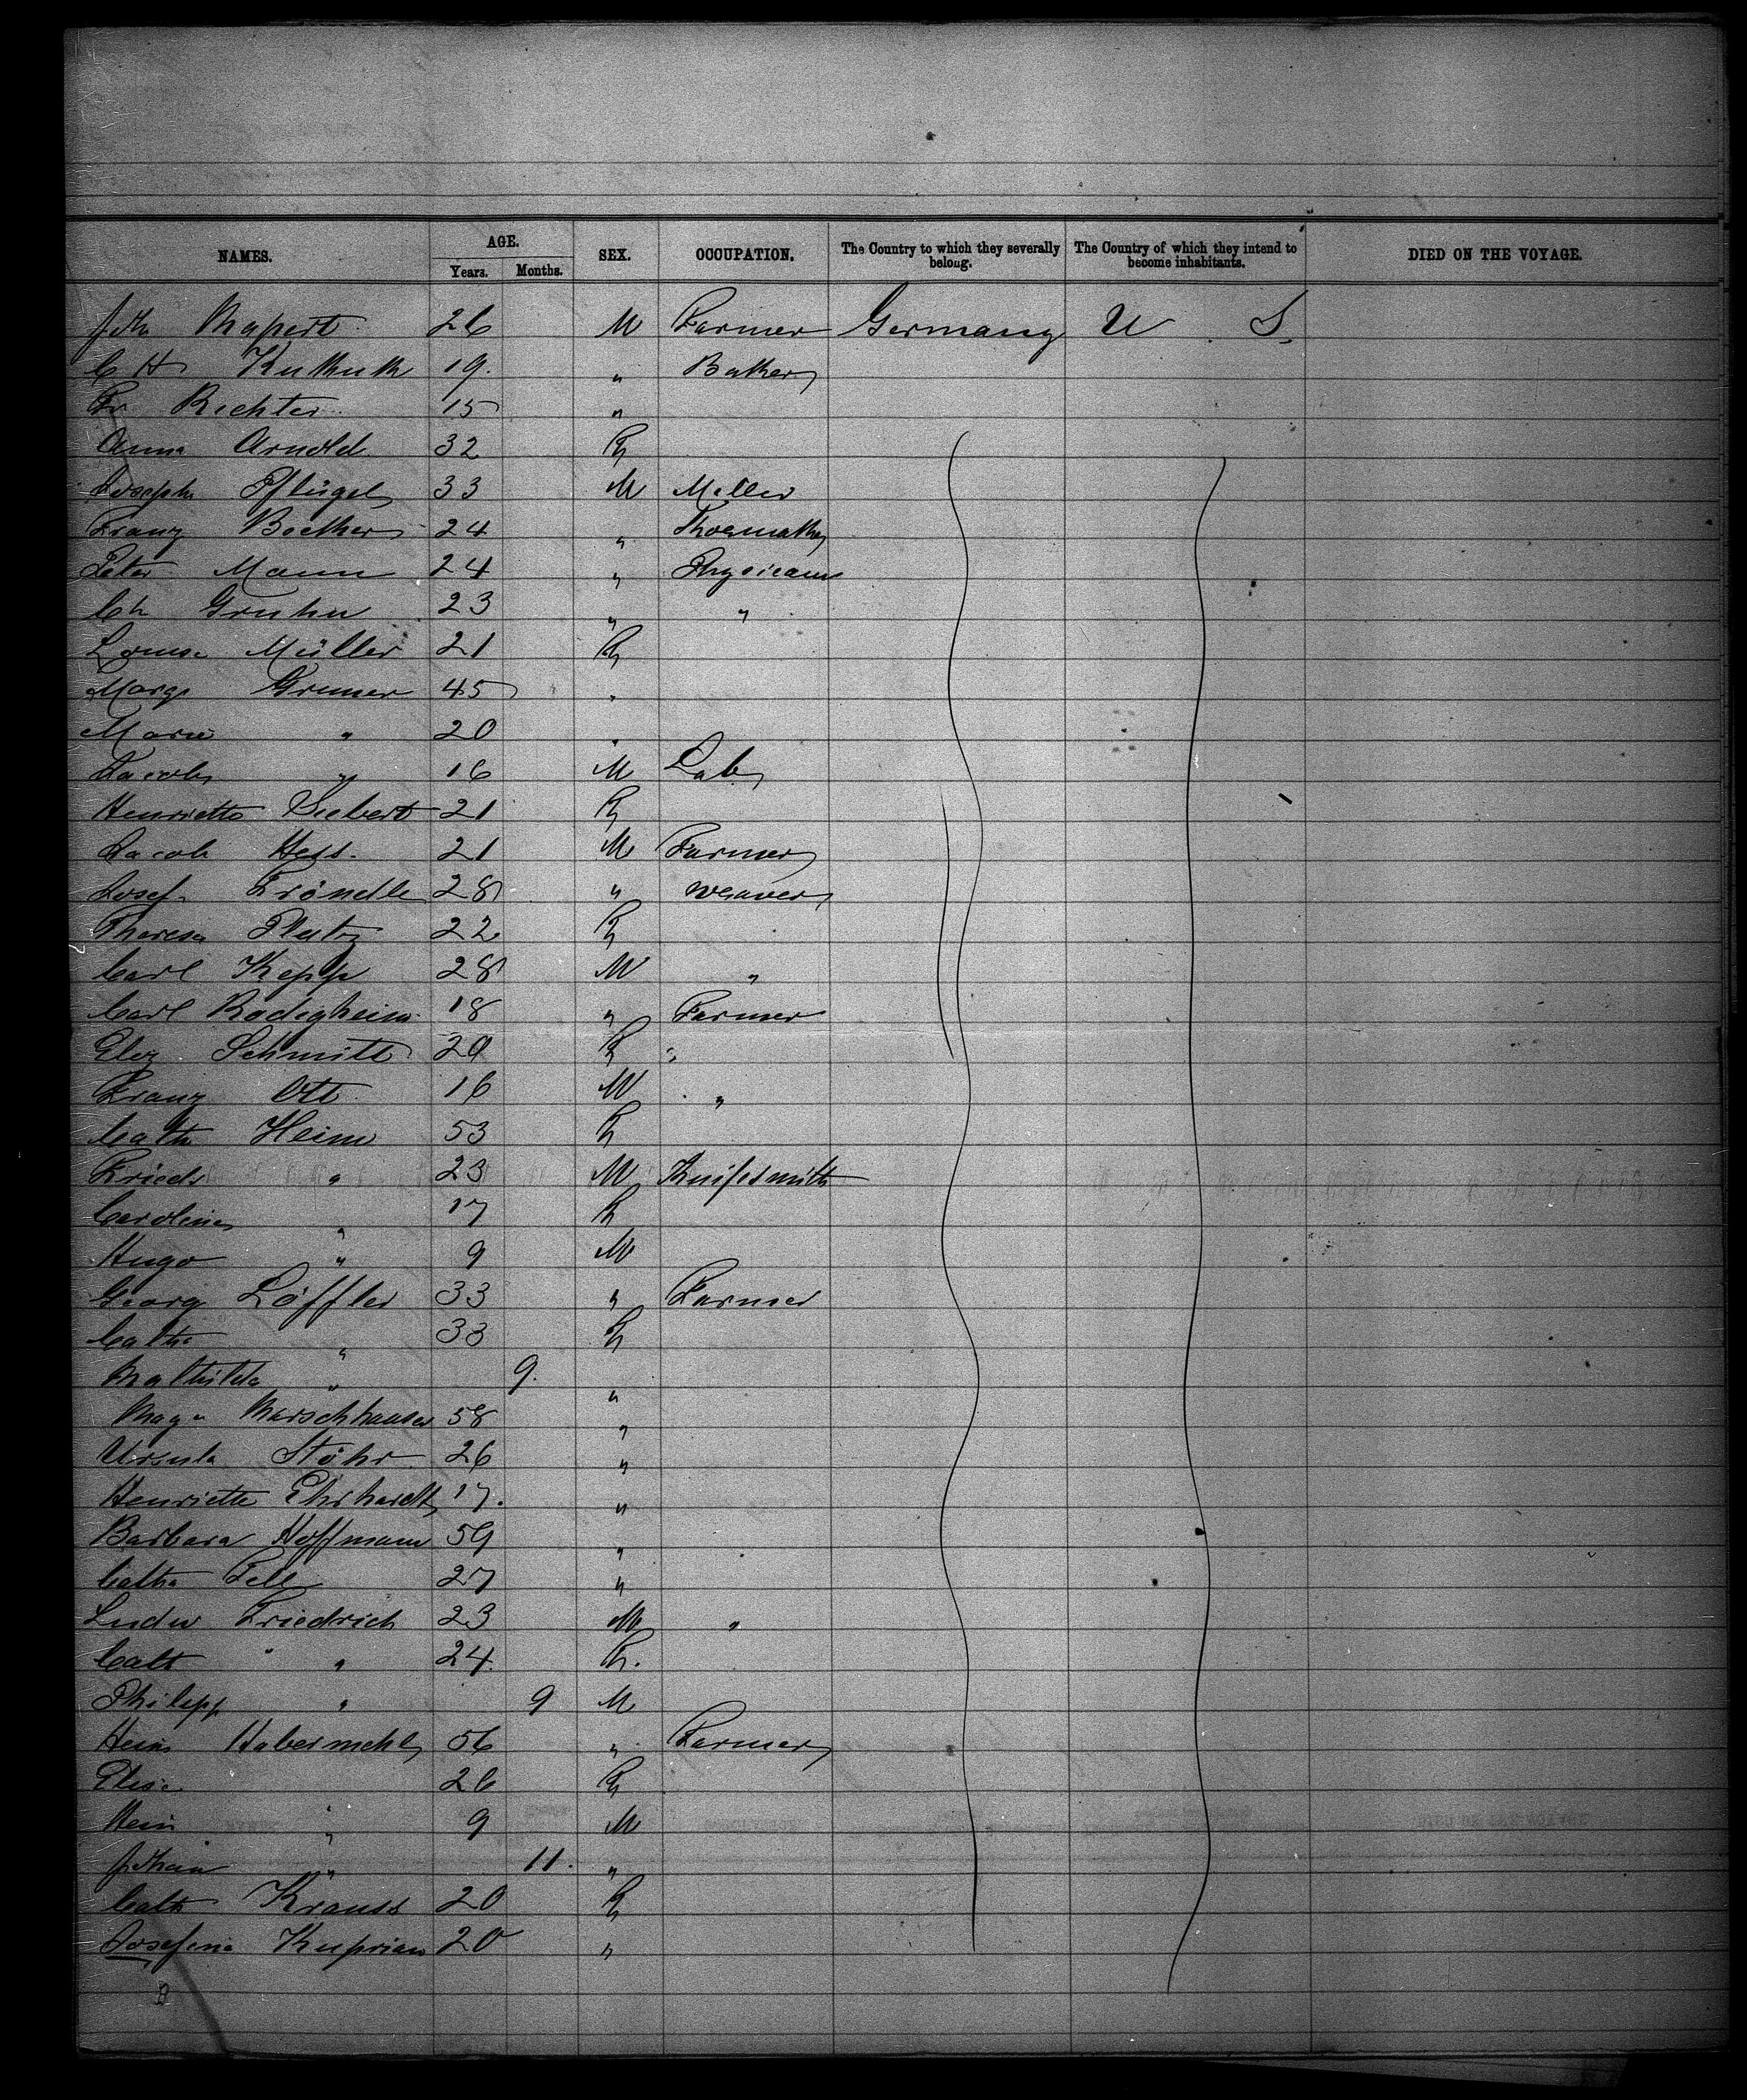 NAMES. AGE. SEX. OCCUPATION. The Country to which they severally belong. The Country of which they intend to become inhabitants. DIED ON THE VOYAGE.
Years. Months.
Joh Rupert 26 M Farmer Germany U S.
C H Kukuk 19. " Baker
Fr Richter 15 "
Anna Arnold 32 F
Joseph Pflügel 33 M Miller
Franz Becker 24 " Shoemaker
Peter Mann 24 " Physician
Ch Gruhn 23 " "
Louise Müller 21 F
Marg. Gruner 45 "
Marie " 20 "
Jacob " 16 M Lab
Henriette Siebert 21 F
Jacob Hess 21 M Farmer
Josef Tröndle 28 " Weaver
Theresa Plutz 22 F
Carl Kepp 28 M "
Carl Rodigheim 18 " Farmer
Eliz Schmitt 20 F "
Franz Ott 16 M "
Cath Heim 53 F
Friedr " 23 M Knifesmith
Caroline " 17 F
Hugo " 9 M
Georg Löffler 33 " Farmer
Cath " 33 F
Mathilda " 9. "
Marschhauser 58 "
Ursula Stöhr 26 "
Henriette Ehrhardt 17. "
Barbara Hoffmann 59 "
Cath Fell 27 "
Ludw Friedrich 23 M "
Cath " 24. F.
Philipp " 9 M
Hein Habermehl 56 " Farmer
Elise " 26 F
Hein " 9 M
Johan " 11. "
Cath Krauss 20 F
Josefina Kuprian 20 "